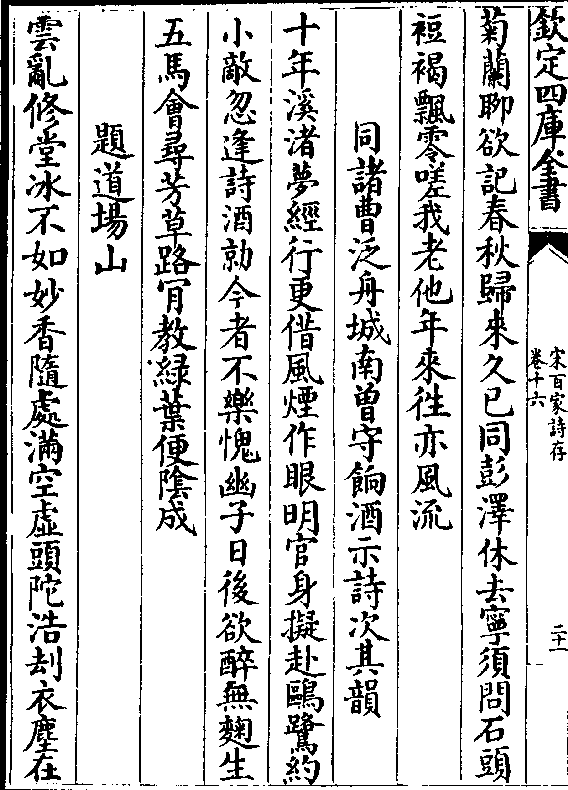 欽定四庫全書
宋百家詩存
卷十六
二十一
菊蘭聊欲記春秋歸來久已同彭澤休去寧須問石頭
裋褐飄零嗟我老他年來徃亦風流
同諸曹泛舟城南曽守餉酒示詩次其韻
十年溪渚夢經行更借風煙作眼明官身擬赴鷗鷺約
小敵忽逢詩酒勍今者不樂愧幽子日後欲醉無麴生
五馬會尋芳草路肎教緑葉便陰成
題道場山
雲亂修堂冰不如妙香隨處滿空虛頭陀浩刦衣塵在